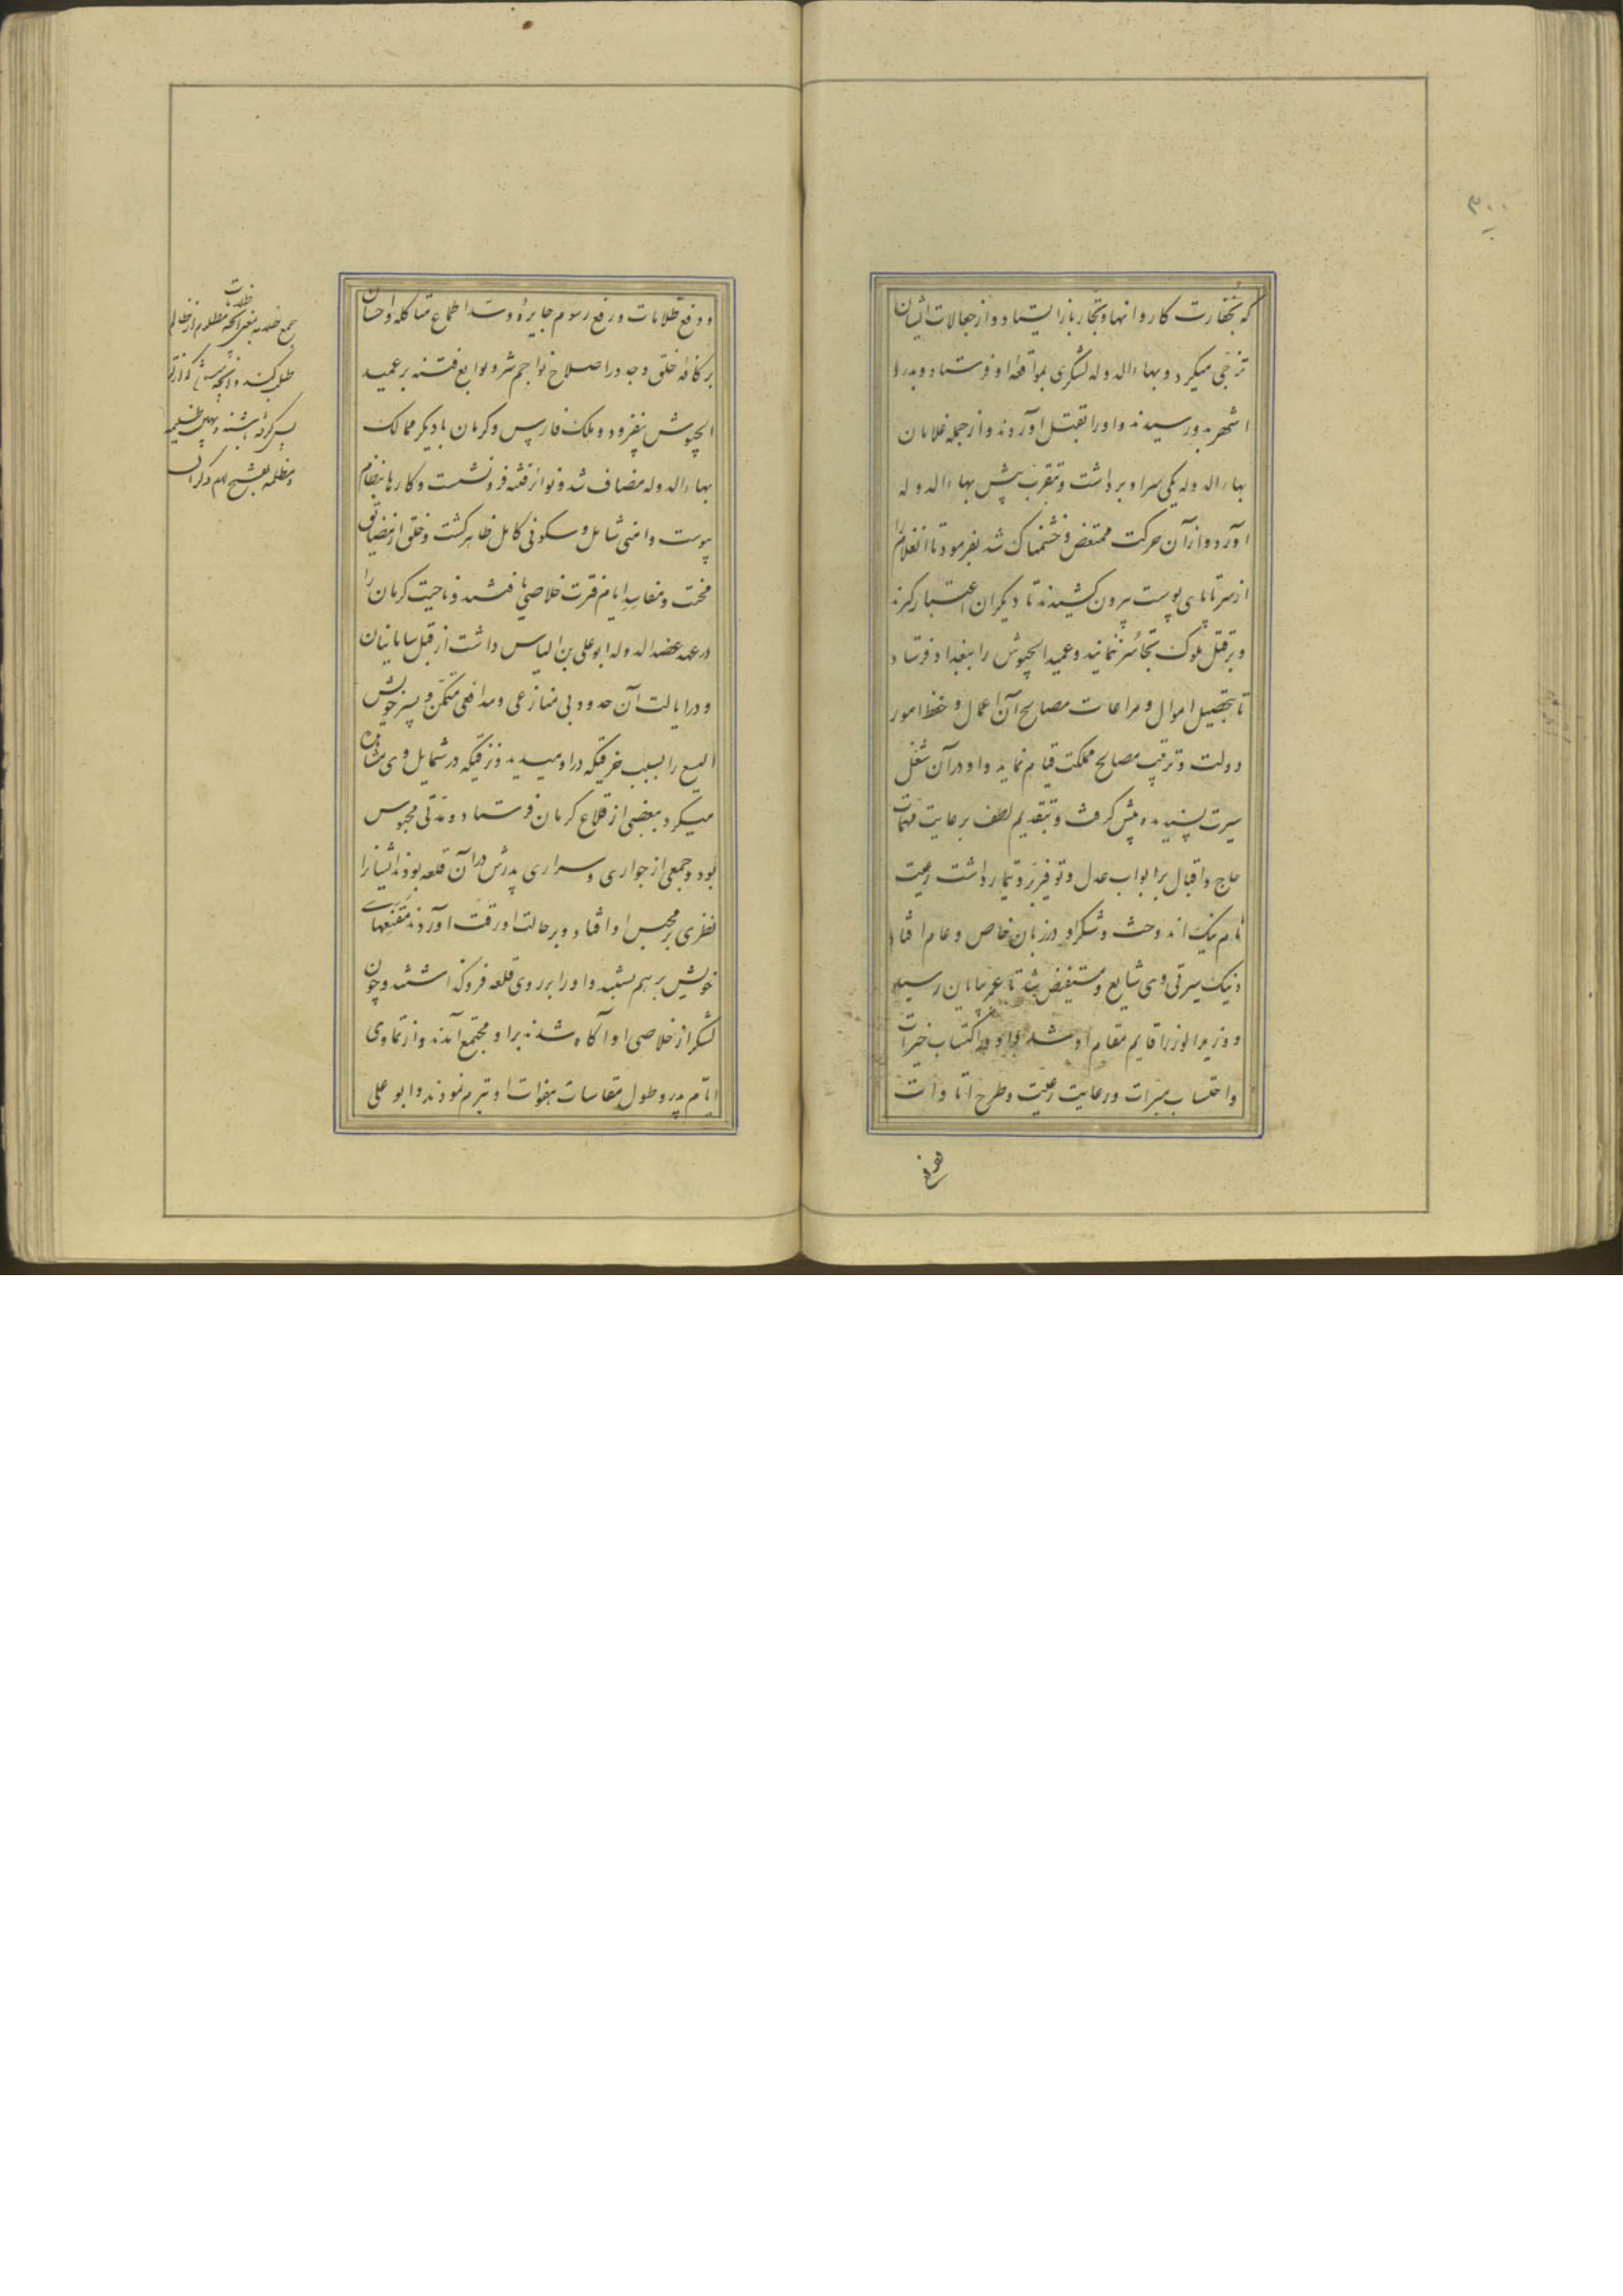 ۳۰۰
که بخفارت کاروانها و تجار باز ایستاد و از جعالات ایشان
تزجی میکرد و بهاءالدوله لشکری بمواقعه او فرستاد و بدر
شهر بدو رسیدند و او را بقتل آوردند و از جمله غلامان
بهاءالدوله یکی سر او برداشت و بتقرب پیش بهاءالدوله
آورد و از آن حرکت ممتعض و خشمناک شد بفرمود تا آنغلام را
از سر تا پای پوست بیرون کشیدند تا دیگران اعتبار گیرند
و بر قتل ملوک تجاسر ننمایند و عمید الجیوش را ببغداد فرستاد
تا بتحصیل اموال و مراعات مصالح آن اعمال و حفظ امور
دولت و ترتیب مصالح مملکت قیام نماید و او در آن شغل
سیرت پسندیده پیش گرفت و بتقدیم لطف بر عایت مهمات
حاج و اقبال بر ابواب عدل و توفیر و تیمار داشت رعیت
نام نیک اندوخت و شکر او در زبان خاص و عام افتاد
و نیک سیرتی وی شایع و مستفیض شد تا عمر بپایان رسید
و وزیر الوزرا قایم مقام او شد و او در اکتساب خیرات
و احتساب مبرات و رعایت رعیت و طرح اتاوات
و دفع ظلامات و رفع رسوم جایره و سد اطماع متاکله و احسان
بر کافه خلق و جد در اصلاح نواجم شر و توابع فتنه بر عمید
الجیوش بیفزود و ملک فارس و کرمان با دیگر ممالک
بهاءالدوله مضاف شد و نوائر فتنه فرو نشست و کارها بنظام
پیوست و امنی شامل و سکونی کامل ظاهر گشت و خلق از مضایق
محنت و مفاسد ایام فترت خلاصی یافتند و ناحیت کرمان را
در عهد عضدالدوله ابو علی بن الیاس داشت از قبل سامانیان
و در ایالت آن حدود بی منازعی و مدافعی متمکن و پسر خویش
الیسع را بسبب که در او میدید و که در شمایل وی مشاهده
میکرد ببعضی از قلاع کرمان فرستاد و مدتی محبوس
بود و جمعی از جواری و سراری پدرش در آن قلعه بودند ایشانرا
نظری بر محبس او افتاد و بر حالت او رقت آوردند مقنعهای
خویش بر هم بستند و او را بر روی قلعه فرو گذاشتند و چون
لشکر از خلاصی او آگاه شدند بر او مجتمع آمدند و از تمادی
ایام پدر و طول مقاسات هفوات او تبرم نمودند و ابو علی
ظلامات
جمع ظلامه بمعنی آنچه مظلوم از ظالم
طلب کند و آنچه